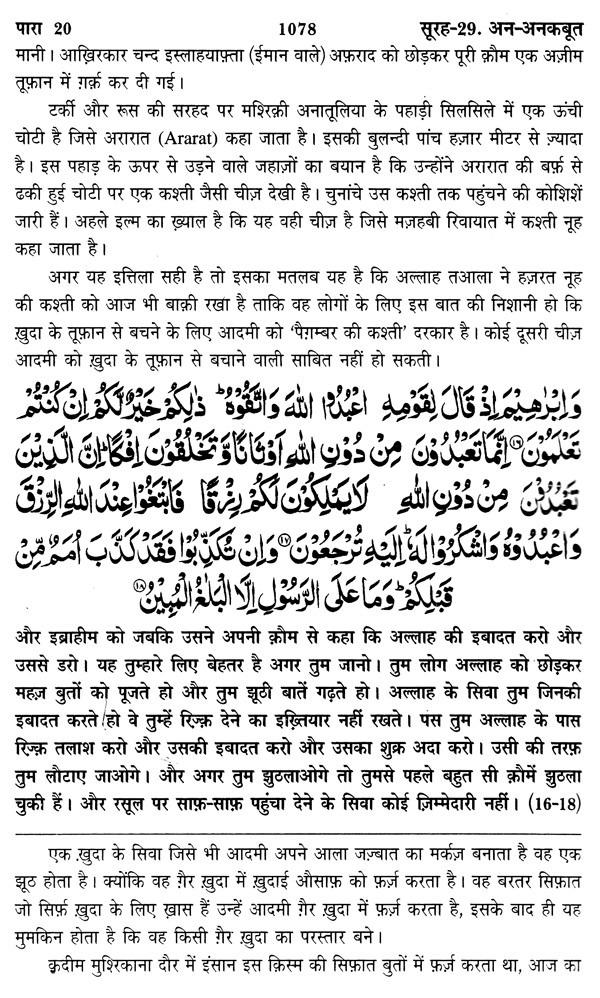 पारा 20 1078 सूरह-29. अन-अनकबूत
मानी। आख़िरकार चन्द इस्लाहयाफ़्ता (ईमान वाले) अफ़राद को छोड़कर पूरी क़ौम एक अज़ीम
तूफ़ान में ग़र्क़ कर दी गई।
टर्की और रूस की सरहद पर मश्रिक़ी अनातूलिया के पहाड़ी सिलसिले में एक ऊंची
चोटी है जिसे अरारात (Ararat) कहा जाता है। इसकी बुलन्दी पांच हज़ार मीटर से ज़्यादा
है। इस पहाड़ के ऊपर से उड़ने वाले जहाज़ों का बयान है कि उन्होंने अरारात की बर्फ़ से
ढकी हुई चोटी पर एक कश्ती जैसी चीज़ देखी है। चुनांचे उस कश्ती तक पहुंचने की कोशिशें
जारी हैं। अहले इल्म का ख़्याल है कि यह वही चीज़ है जिसे मज़हबी रिवायात में कश्ती नूह
कहा जाता है।
अगर यह इत्तिला सही है तो इसका मतलब यह है कि अल्लाह तआला ने हज़रत नूह
की कश्ती को आज भी बाक़ी रखा है ताकि वह लोगों के लिए इस बात की निशानी हो कि
ख़ुदा के तूफ़ान से बचने के लिए आदमी को ‘पैग़म्बर की कश्ती’ दरकार है। कोई दूसरी चीज़
आदमी को ख़ुदा के तूफ़ान से बचाने वाली साबित नहीं हो सकती।
وَإِبْرٰهِيْمَ إِذْ قَالَ لِقَوْمِهِ اعْبُدُوا اللّٰهَ وَاتَّقُوْهُ ۖ ذٰلِكُمْ خَيْرٌ لَّكُمْ إِنْ كُنْتُمْ
تَعْلَمُوْنَ ﴿١٦﴾ إِنَّمَا تَعْبُدُوْنَ مِنْ دُوْنِ اللّٰهِ أَوْثَانًا وَّتَخْلُقُوْنَ إِفْكًا ۚ إِنَّ الَّذِيْنَ
تَعْبُدُوْنَ مِنْ دُوْنِ اللّٰهِ لَا يَمْلِكُوْنَ لَكُمْ رِزْقًا فَابْتَغُوْا عِنْدَ اللّٰهِ الرِّزْقَ
وَاعْبُدُوْهُ وَاشْكُرُوْا لَهٗ ۚ إِلَيْهِ تُرْجَعُوْنَ ﴿١٧﴾ وَإِنْ تُكَذِّبُوْا فَقَدْ كَذَّبَ أُمَمٌ مِّنْ
قَبْلِكُمْ ۚ وَمَا عَلَى الرَّسُوْلِ إِلَّا الْبَلٰغُ الْمُبِيْنُ ﴿١٨﴾
और इब्राहीम को जबकि उसने अपनी क़ौम से कहा कि अल्लाह की इबादत करो और
उससे डरो। यह तुम्हारे लिए बेहतर है अगर तुम जानो। तुम लोग अल्लाह को छोड़कर
महज़ बुतों को पूजते हो और तुम झूठी बातें गढ़ते हो। अल्लाह के सिवा तुम जिनकी
इबादत करते हो वे तुम्हें रिज़्क़ देने का इख़्तियार नहीं रखते। पस तुम अल्लाह के पास
रिज़्क़ तलाश करो और उसकी इबादत करो और उसका शुक्र अदा करो। उसी की तरफ़
तुम लौटाए जाओगे। और अगर तुम झुठलाओगे तो तुमसे पहले बहुत सी क़ौमें झुठला
चुकी हैं। और रसूल पर साफ़-साफ़ पहुंचा देने के सिवा कोई ज़िम्मेदारी नहीं। (16-18)
एक ख़ुदा के सिवा जिसे भी आदमी अपने आला जज़्बात का मर्कज़ बनाता है वह एक
झूठ होता है। क्योंकि वह ग़ैर ख़ुदा में ख़ुदाई औसाफ़ को फ़र्ज़ करता है। वह बरतर सिफ़ात
जो सिर्फ़ ख़ुदा के लिए ख़ास हैं उन्हें आदमी ग़ैर ख़ुदा में फ़र्ज़ करता है, इसके बाद ही यह
मुमकिन होता है कि वह किसी ग़ैर ख़ुदा का परस्तार बने।
क़दीम मुश्रिकाना दौर में इंसान इस क़िस्म की सिफ़ात बुतों में फ़र्ज़ करता था, आज का